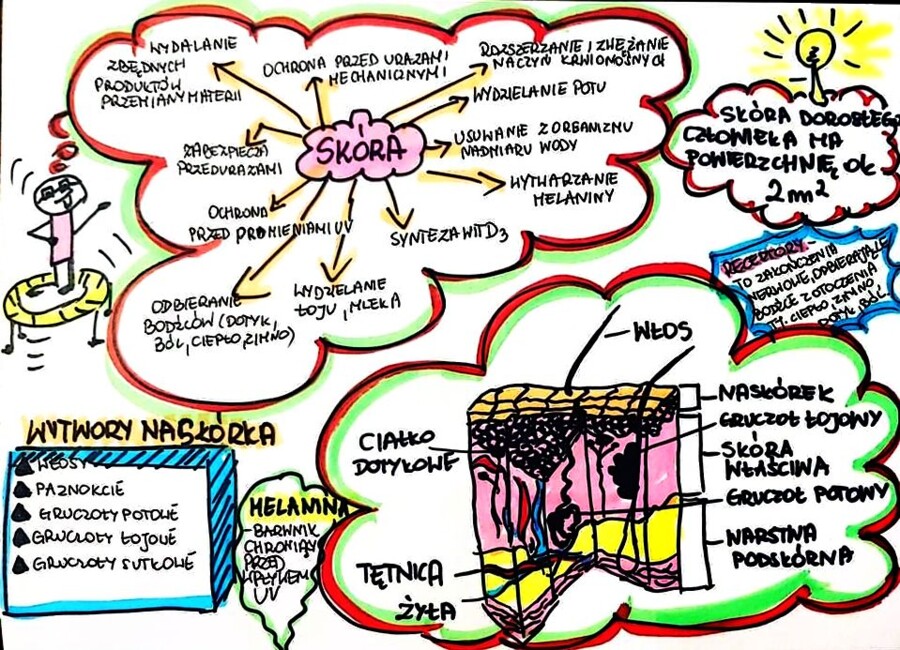 WYDALANIE
ZBĘDNYCH
PRODUKTÓW
PRZEMIANY MATERII
OCHRONA PRZED URAZAMI
MECHANICZNYMI
ROZSZERZANIE I ZWĘŻANIE
NACZYŃ KRWIONOŚNYCH
WYDZIELANIE POTU
USUWANIE Z ORGANIZMU
NADMIARU WODY
WYTWARZANIE
MELANINY
SYNTEZA WIT D3
WYDZIELANIE
ŁOJU, MLEKA
ODBIERANIE
BODŹCÓW (DOTYK,
BÓL, CIEPŁO, ZIMNO)
OCHRONA
PRZED PROMIENIAMI UV
ZABEZPIECZA
PRZED URAZAMI
SKÓRA
SKÓRA DOROSŁEGO
CZŁOWIEKA MA
POWIERZCHNIĘ OK.
2m²
RECEPTORY -
TO ZAKOŃCZENIA
NERWOWE, ODBIERAJĄCE
BODŹCE Z OTOCZENIA
TJ. CIEPŁO, ZIMNO
DOTYK, BÓL
WYTWORY NASKÓRKA
WŁOSY
PAZNOKCIE
GRUCZOŁY POTOWE
GRUCZOŁY ŁOJOWE
GRUCZOŁY SUTKOWE
MELANINA
- BARWNIK
CHRONIĄCY
PRZED
WPŁYWEM
UV
WŁOS
NASKÓREK
GRUCZOŁ ŁOJOWY
SKÓRA
WŁAŚCIWA
GRUCZOŁ POTOWY
WARSTWA
PODSKÓRNA
CIAŁKO
DOTYKOWE
TĘTNICA
ŻYŁA